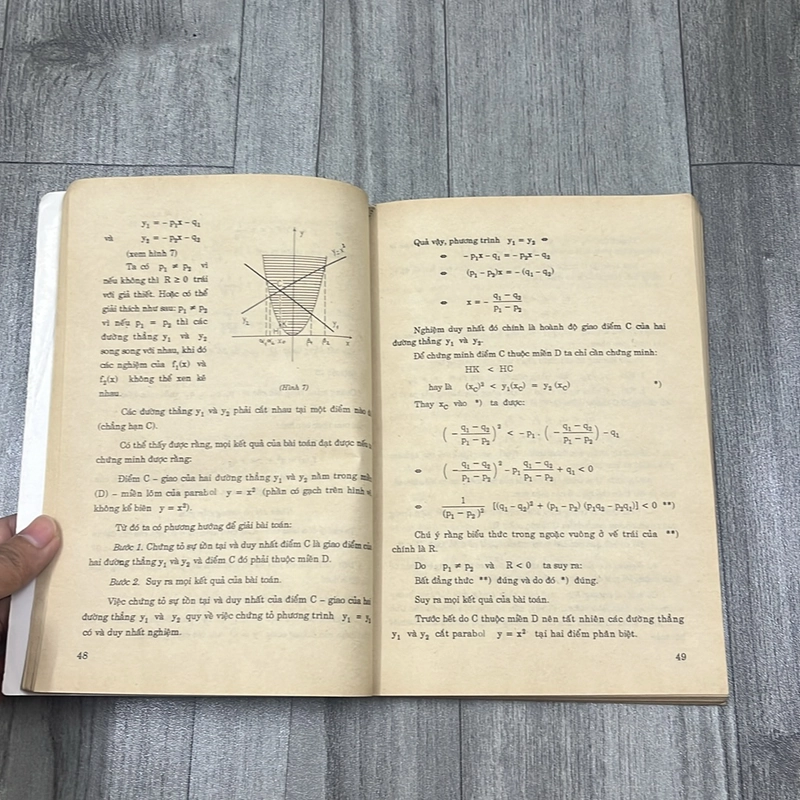 y₁ = – p₁x – q₁
và y₂ = – p₂x – q₂
(xem hình 7)
Ta có p₁ ≠ p₂ vì
nếu không thì R ≥ 0 trái
với giả thiết. Hoặc có thể
giải thích như sau: p₁ ≠ p₂
vì nếu p₁ = p₂ thì các
đường thẳng y₁ và y₂
song song với nhau, khi đó
các nghiệm của f₁(x) và
f₂(x) không thể xen kẽ
nhau.
y
y=x²
C
y₂
y₁
x
(Hình 7)
Các đường thẳng y₁ và y₂ phải cắt nhau tại một điểm nào
(chẳng hạn C).
Có thể thấy được rằng, mọi kết quả của bài toán đạt được nếu
chứng minh được rằng:
Điểm C – giao của hai đường thẳng y₁ và y₂ nằm trong
(D) – miền lõm của parabol y = x² (phần có gạch trên hình
không kể biên y = x²).
Từ đó ta có phương hướng để giải bài toán:
Bước 1. Chứng tỏ sự tồn tại và duy nhất điểm C là giao điểm của
hai đường thẳng y₁ và y₂ và điểm C đó phải thuộc miền D.
Bước 2. Suy ra mọi kết quả của bài toán.
Việc chứng tỏ sự tồn tại và duy nhất của điểm C – giao của hai
đường thẳng y₁ và y₂ quy về việc chứng tỏ phương trình y₁ = y₂
có và duy nhất nghiệm.
48
Quả vậy, phương trình y₁ = y₂ ⇔
⇔ –p₁x – q₁ = –p₂x – q₂
⇔ (p₁ – p₂)x = – (q₁ – q₂)
⇔ x = – (q₁ – q₂)/(p₁ – p₂)
Nghiệm duy nhất đó chính là hoành độ giao điểm C của hai
đường thẳng y₁ và y₂.
Để chứng minh điểm C thuộc miền D ta chỉ cần chứng minh:
HK < HC
hay là (x_C)² < y₁(x_C) = y₂(x_C) *)
Thay x_C vào *) ta được:
(– (q₁ – q₂)/(p₁ – p₂))² < –p₁ . (– (q₁ – q₂)/(p₁ – p₂)) – q₁
⇔ (– (q₁ – q₂)/(p₁ – p₂))² – p₁ (q₁ – q₂)/(p₁ – p₂) + q₁ < 0
⇔ 1/(p₁ – p₂)² [(q₁ – q₂)² + (p₁ – p₂) (p₁q₂ – p₂q₁)] < 0 **)
Chú ý rằng biểu thức trong ngoặc vuông ở vế trái của **)
chính là R.
Do p₁ ≠ p₂ và R < 0 ta suy ra:
Bất đẳng thức **) đúng và do đó *) đúng.
Suy ra mọi kết quả của bài toán.
Trước hết do C thuộc miền D nên tất nhiên các đường thẳng
y₁ và y₂ cắt parabol y = x² tại hai điểm phân biệt.
49